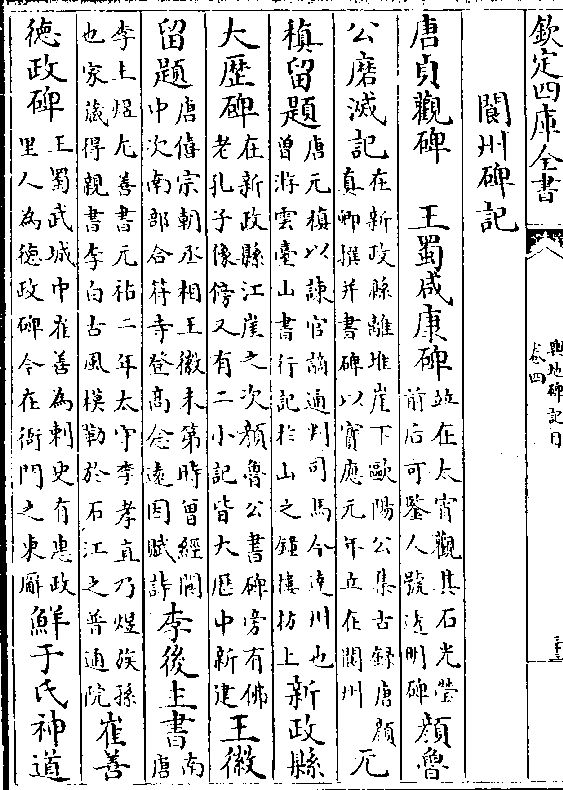 欽定四庫全書
輿地碑記目
卷四
閬州碑記
唐貞觀碑　王蜀咸康碑並在太宵觀其石光瑩前后可鑒人號透明碑　顔魯
公磨滅記在新政縣離堆崖下歐陽公集古録唐顔真卿撰并書碑以寳應元年立在閬州　元
稹留題唐元稹以諫官謫通判司馬今逹川也曾游雲臺山書行記於山之鐘樓枋上　新政縣
大歴碑在新政縣江崖之次顔魯公書碑旁有佛老孔子像傍又有二小記皆大歴中新建　王徽
留題唐僖宗朝丞相王徽未第時曾經閬中次南部合符寺登高念遠因賦詩　李後上書南唐
李上煜尤善書元祐二年太守李孝直乃煜族孫也家藏得親書李白古風模勒於石江之普通院　崔善
德政碑王蜀武城中崔善為刺史有惠政里人為德政碑今在衙門之東廡　鮮于氏神道